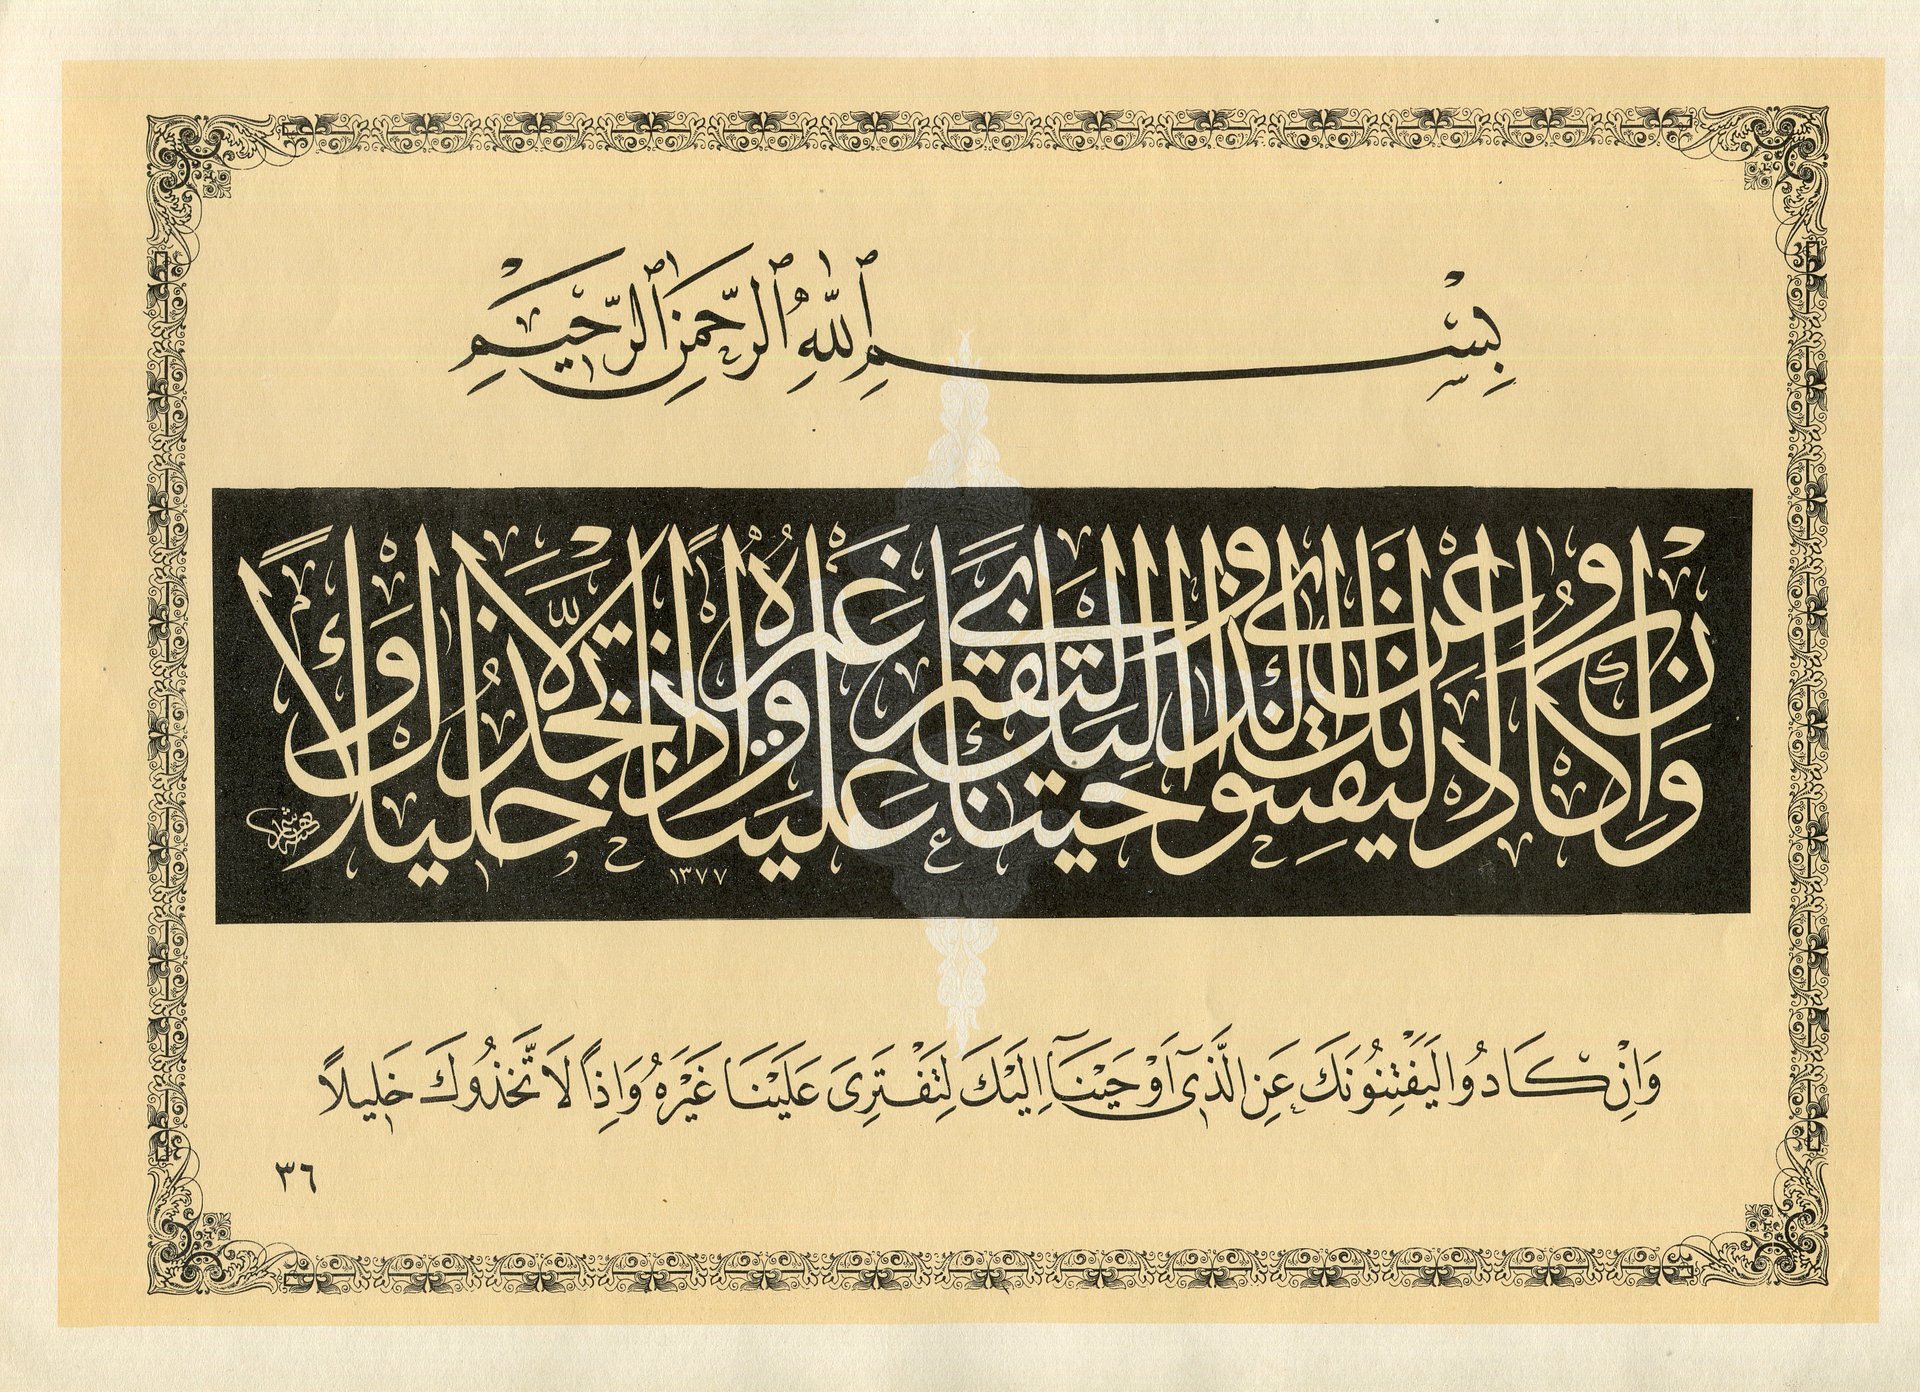 بِسْمِ ٱللّٰهِ ٱلرَّحْمٰنِ ٱلرَّحِيمِ
وَاِنْ كَادُوا لَيَفْتِنُونَكَ عَنِ الَّذِى اَوْحَيْنَا اِلَيْكَ لِتَفْتَرِىَ عَلَيْنَا غَيْرَهُ وَاِذًا لَاتَّخَذُوكَ خَلِيلًا
١٣٧٧
وَاِنْ كَادُوا لَيَفْتِنُونَكَ عَنِ الَّذِى اَوْحَيْنَآ اِلَيْكَ لِتَفْتَرِىَ عَلَيْنَا غَيْرَهُ وَاِذًا لَاتَّخَذُوكَ خَلِيلًا
٣٦